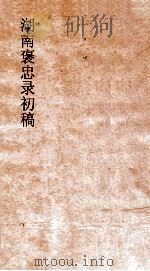 湖南褒忠录初稿
mtoou.info
mtoou.info